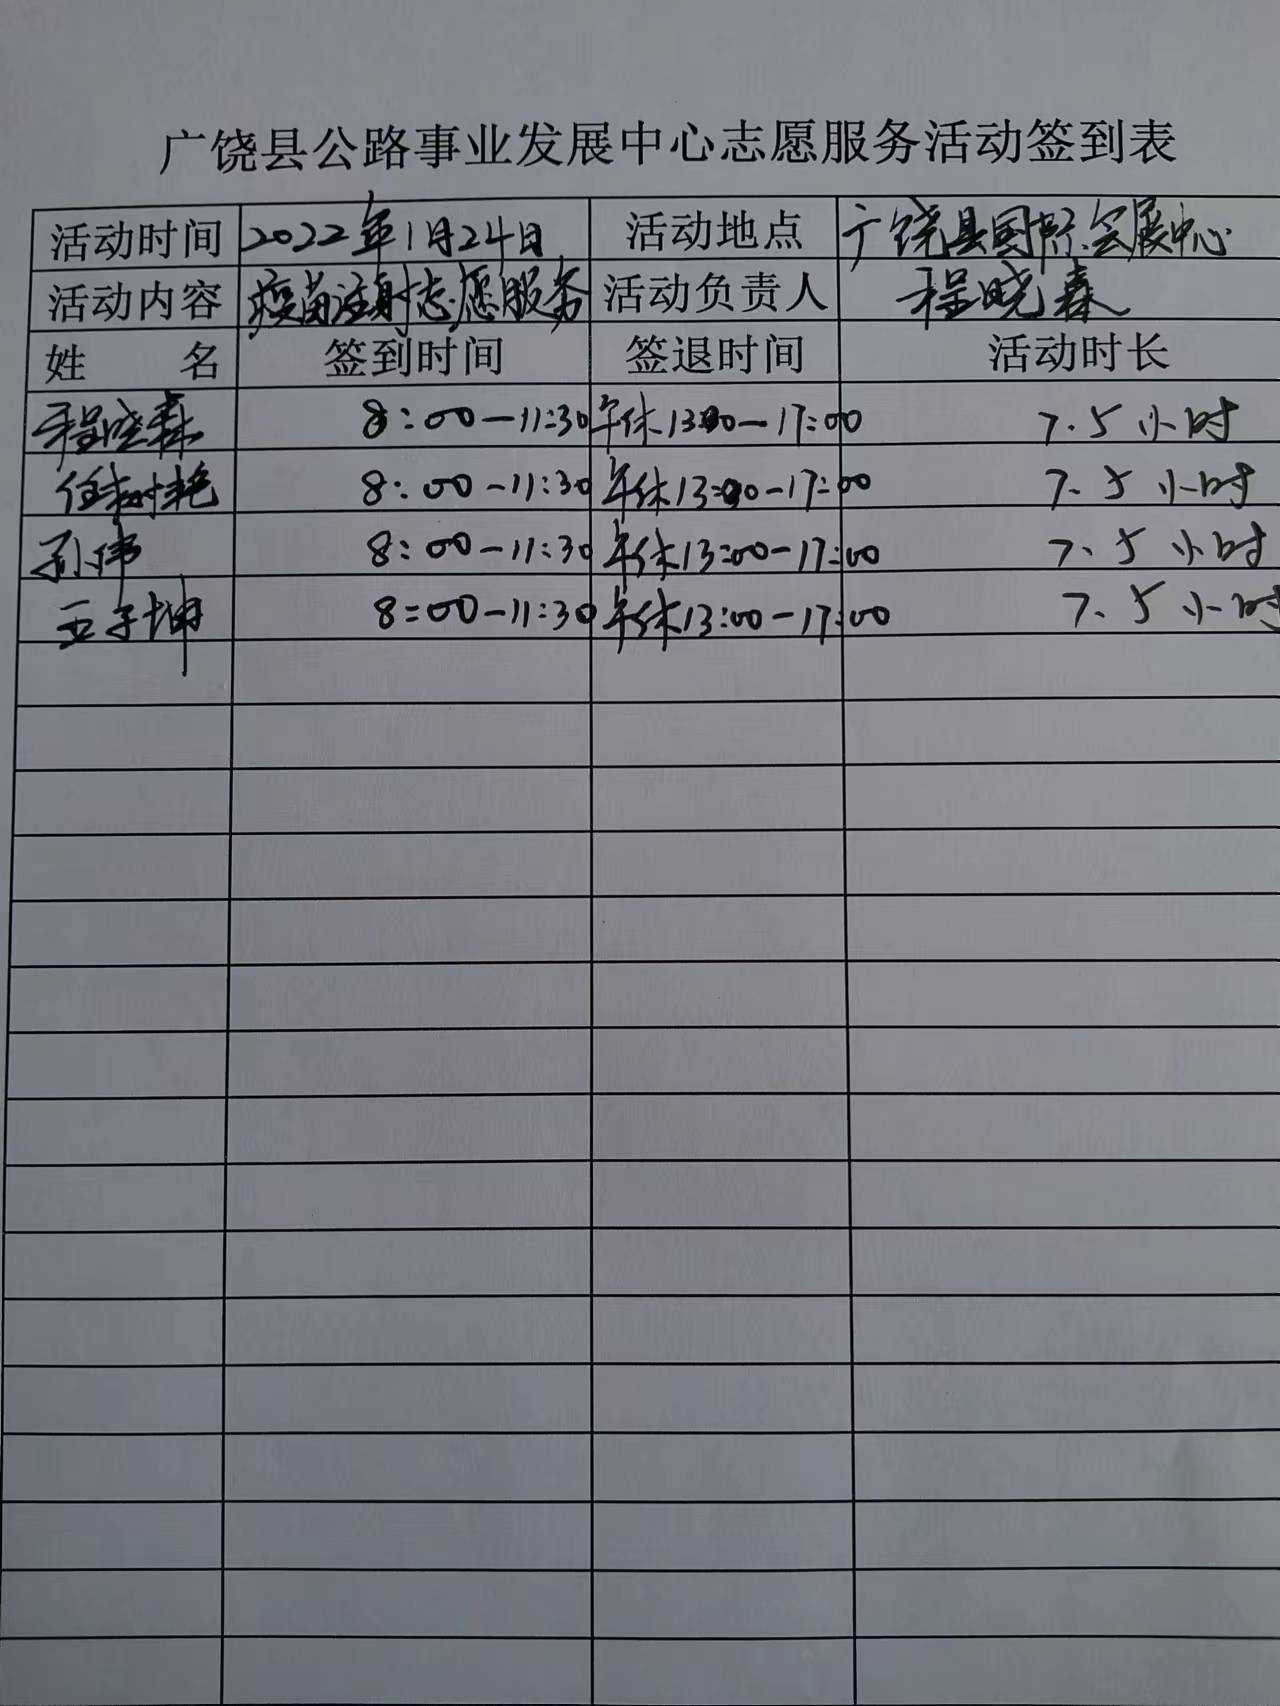 广饶县公路事业发展中心志愿服务活动签到表
活动时间 2022年1月24日 活动地点 广饶县国际会展中心
活动内容 疫苗注射志愿服务 活动负责人 程晓森
姓 名 签到时间 签退时间 活动时长
程晓森 8:00-11:30 午休13:00-17:00 7.5小时
8:00-11:30 午休13:00-17:00 7.5小时
孙伟 8:00-11:30 午休13:00-17:00 7.5小时
王子坤 8:00-11:30 午休13:00-17:00 7.5小时